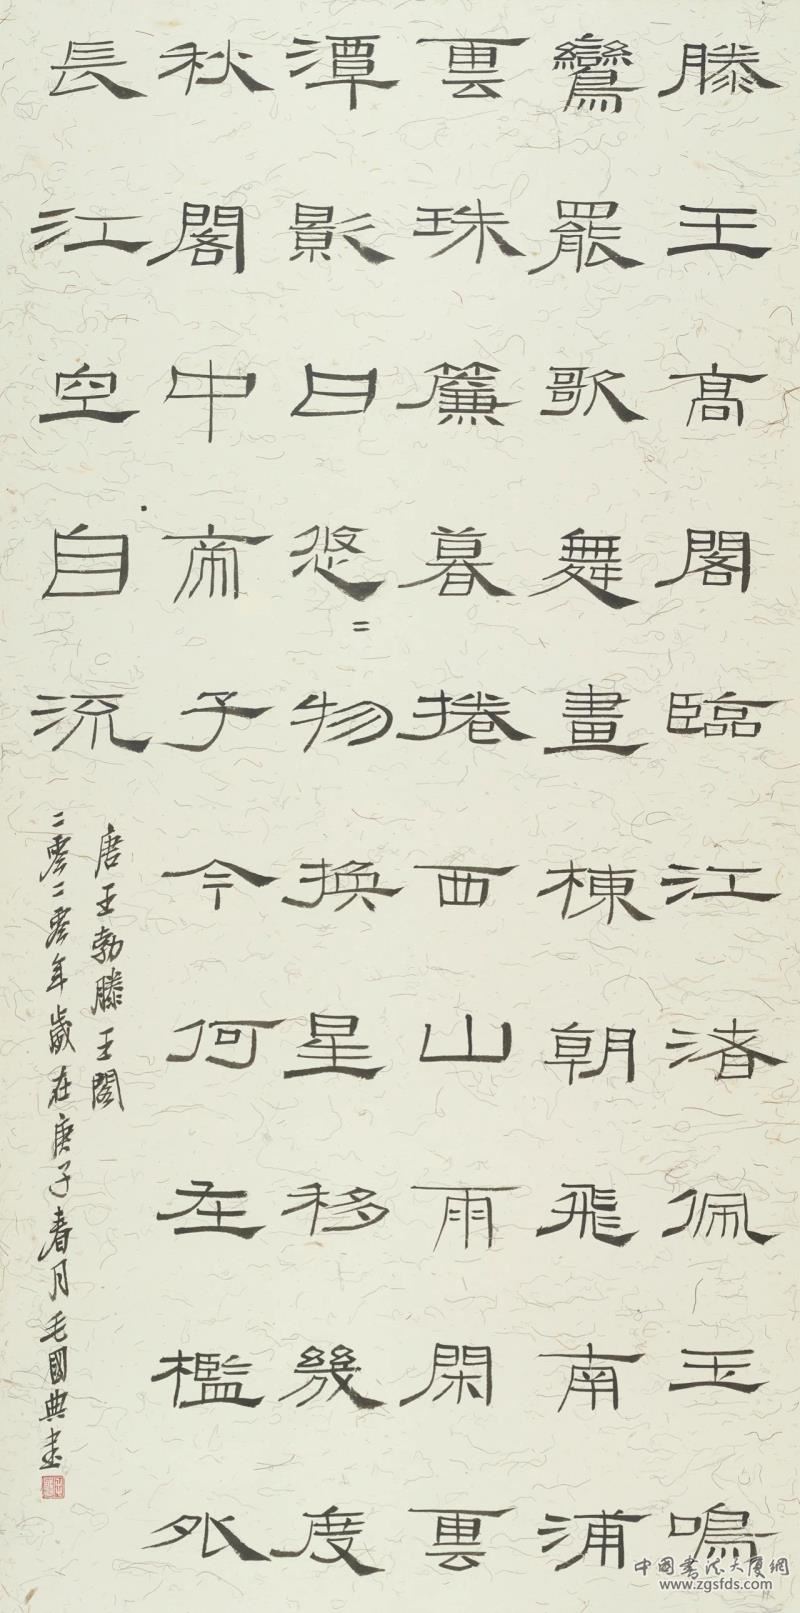 滕王高閣臨江渚佩玉鳴
鸞罷歌舞畫棟朝飛南浦
雲珠簾暮捲西山雨閑雲
潭影日悠=物换星移幾度
秋閣中帝子今何在檻外
長江空自流
唐王勃滕王閣
二零二零年歲在庚子春月毛國典書
中國書法大廈網
www.zgsfds.com